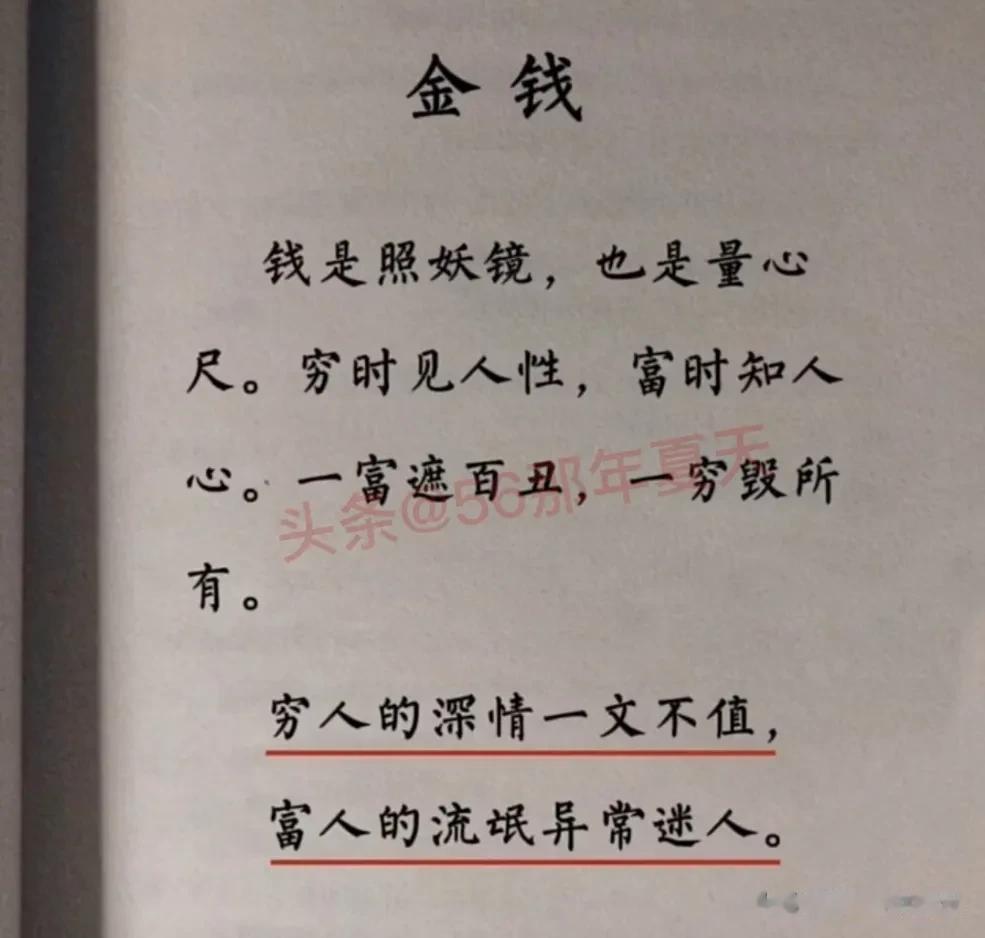 金钱
钱是照妖镜，也是量心
尺。穷时见人性，富时知人
心。一富遮百丑，一穷毁所
有。
头条@56那年夏天
穷人的深情一文不值，
富人的流氓异常迷人。